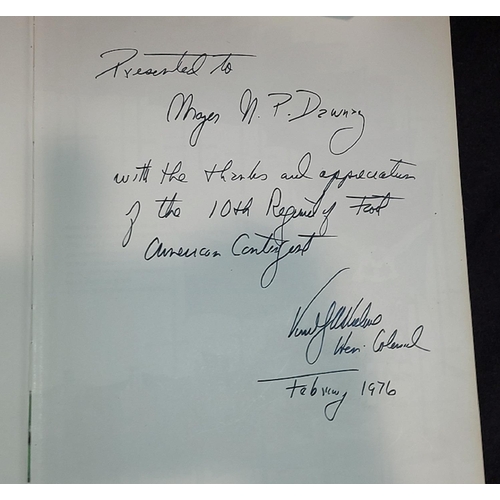 Presented to
Major N. P. Dawnay
with the thanks and appreciation
of the 10th Regiment of Foot
American Contingent
Hon. Colonel
February 1976